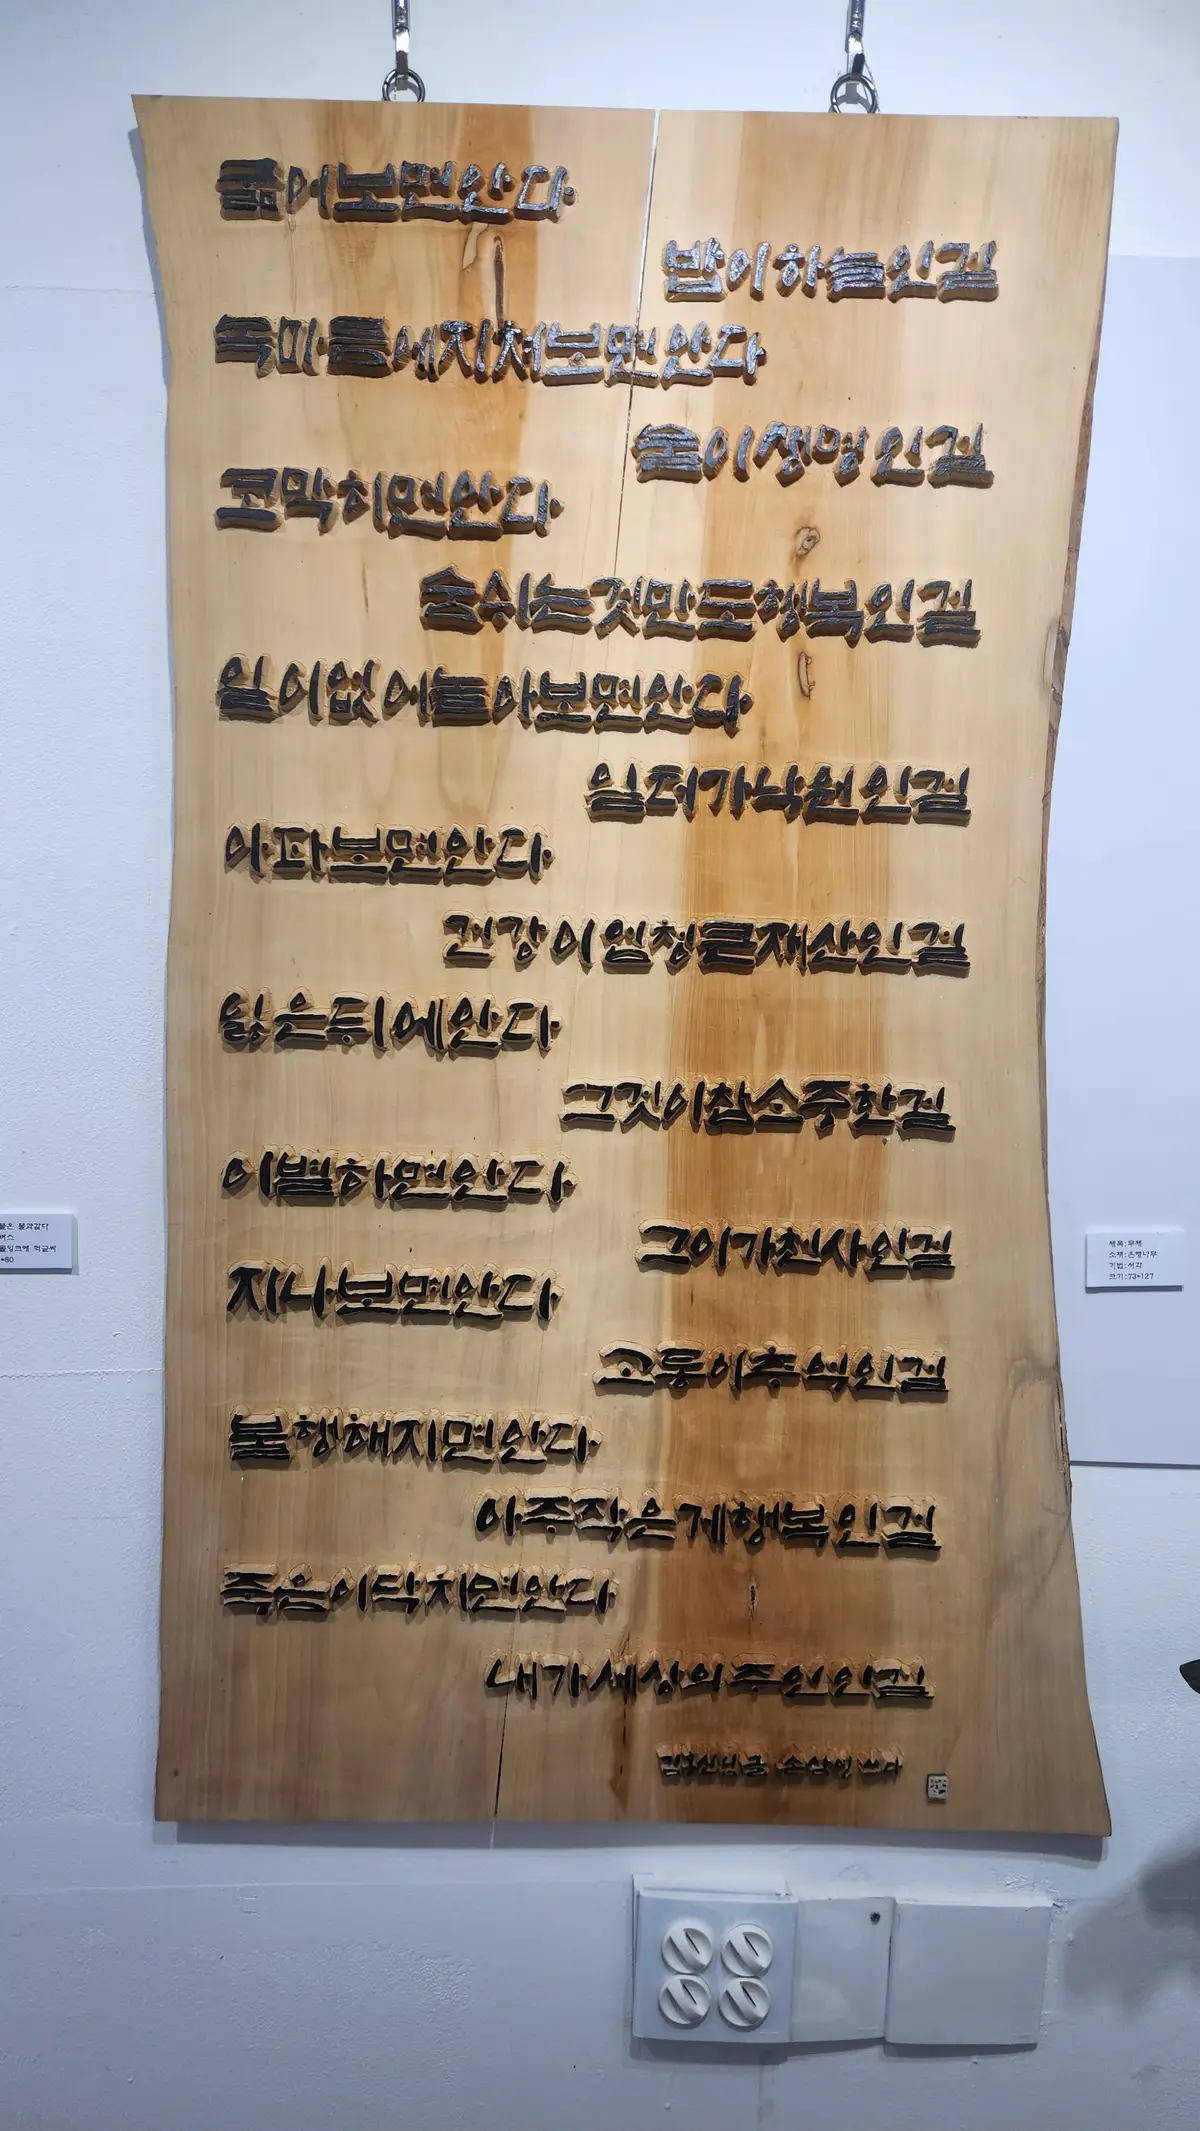 굶어보면안다
밥이하늘인걸
목마름에지쳐보면안다
물이생명인걸
코막히면안다
숨쉬는것만도행복인걸
일이없어놀아보면안다
일터가낙원인걸
아파보면안다
건강이엄청큰재산인걸
잃은뒤에안다
그것이참소중한걸
이별하면안다
그이가천사인걸
지나보면안다
고통이추억인걸
불행해지면안다
아주작은게행복인걸
죽음이닥치면안다
내가세상의주인인걸
글 손삼연 쓰다
물은 불과같다
버스
먹글씨
*60
제목:무제
소재:은행나무
기법:서각
크기:73*127